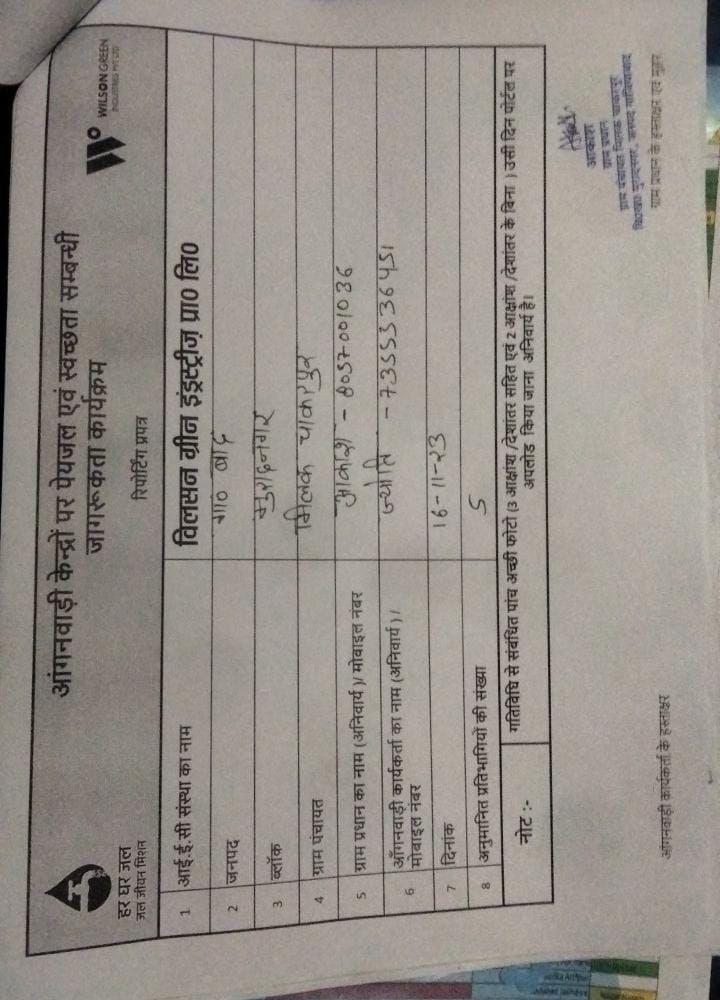 आंगनवाड़ी केन्द्रों पर पेयजल एवं स्वच्छता सम्बन्धी
जागरूकता कार्यक्रम
रिपोर्टिंग प्रपत्र
हर घर जल
जल जीवन मिशन
WILSON GREEN
INDUSTRIES PVT LTD
1 आई.ई.सी संस्था का नाम विलसन ग्रीन इंडस्ट्रीज़ प्रा0 लि0
2 जनपद गा0 बाद
3 ब्लॉक मुरादनगर
4 ग्राम पंचायत मिलक चाकरपुर
5 ग्राम प्रधान का नाम (अनिवार्य )/ मोबाइल नंबर आकाश - 8057001036
6 आँगनवाड़ी कार्यकर्ता का नाम (अनिवार्य ) /
मोबाइल नंबर ज्योति - 7355536451
7 दिनांक 16-11-23
8 अनुमानित प्रतिभागियों की संख्या 5
नोट :- गतिविधि से संबंधित पांच अच्छी फोटो (3 आक्षांश /देशांतर सहित एवं 2 आक्षांश /देशांतर के बिना ) उसी दिन पोर्टल पर
अपलोड किया जाना अनिवार्य है।
आकाश
ग्राम प्रधान
ग्राम पंचायत मिलक चाकरपुर
वि0ख0 मुरादनगर, जनपद गाजियाबाद
आंगनवाड़ी कार्यकर्ता के हस्ताक्षर
ग्राम प्रधान के हस्ताक्षर एवं मुहर